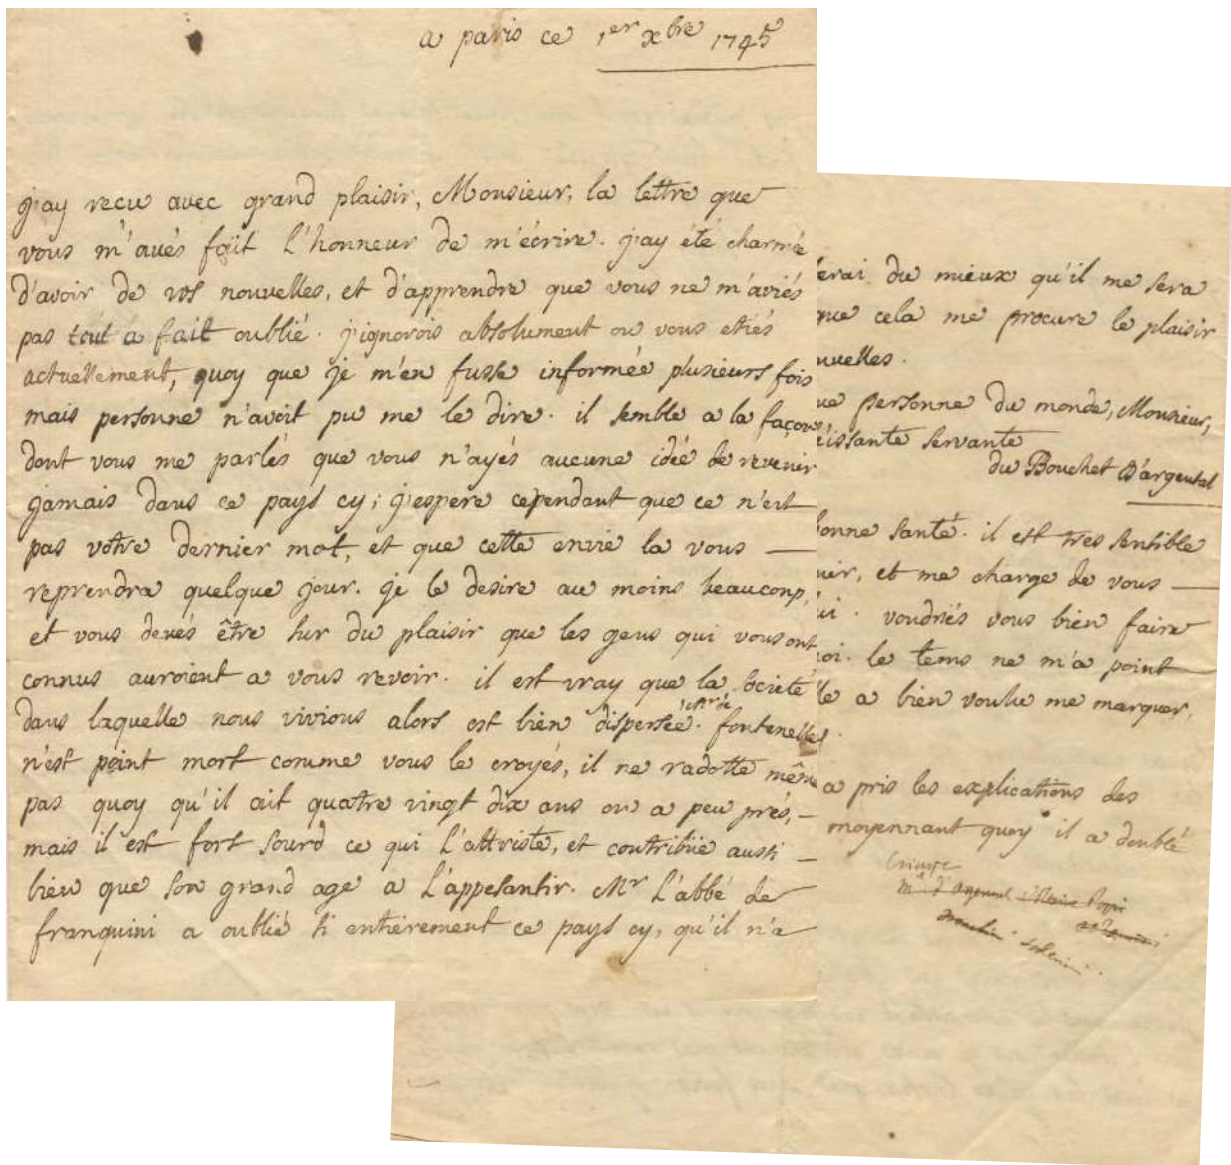 a paris ce 1er xbre 1745
j'ay recu avec grand plaisir, Monsieur, la lettre que
vous m'avés fait l'honneur de m'écrire. j'ay été charmée
d'avoir de vos nouvelles, et d'apprendre que vous ne m'aviés
pas tout a fait oublié. j'ignorois absolument ou vous etiés
actuellement, quoy que je m'en fusse informée plusieurs fois
mais personne n'avoit pu me le dire. il semble a la façon
dont vous me parlés que vous n'ayés aucune idée de revenir
jamais dans ce pays cy; j'espere cependant que ce n'est
pas vôtre dernier mot, et que cette envie la vous —
reprendra quelque jour. je le desire au moins beaucoup,
et vous devés être sur du plaisir que les gens qui vous ont
connus auroient a vous revoir. il est vray que la societé
dans laquelle nous vivions alors est bien dispersée. fontenelles
n'est point mort comme vous le croyés, il ne radotte même
pas quoy qu'il ait quatre vingt dix ans ou a peu prés, —
mais il est fort sourd ce qui l'attriste, et contribüe aussi —
bien que son grand age a l'appesantir. Mr l'abbé de
franquini a oublié si entiérement ce pays cy, qu'il n'a
erai du mieux qu'il me sera
que cela me procure le plaisir
uvelles.
ue personne du monde, Monsieur,
éissante servante
du Bouchet D'argental
onne santé. il est tres sensible
nir, et me charge de vous —
ui. voudriés vous bien faire
oi. le tems ne m'a point
le a bien voulu me marquer.
a pris les explications des
moyennant quoy il a doublé